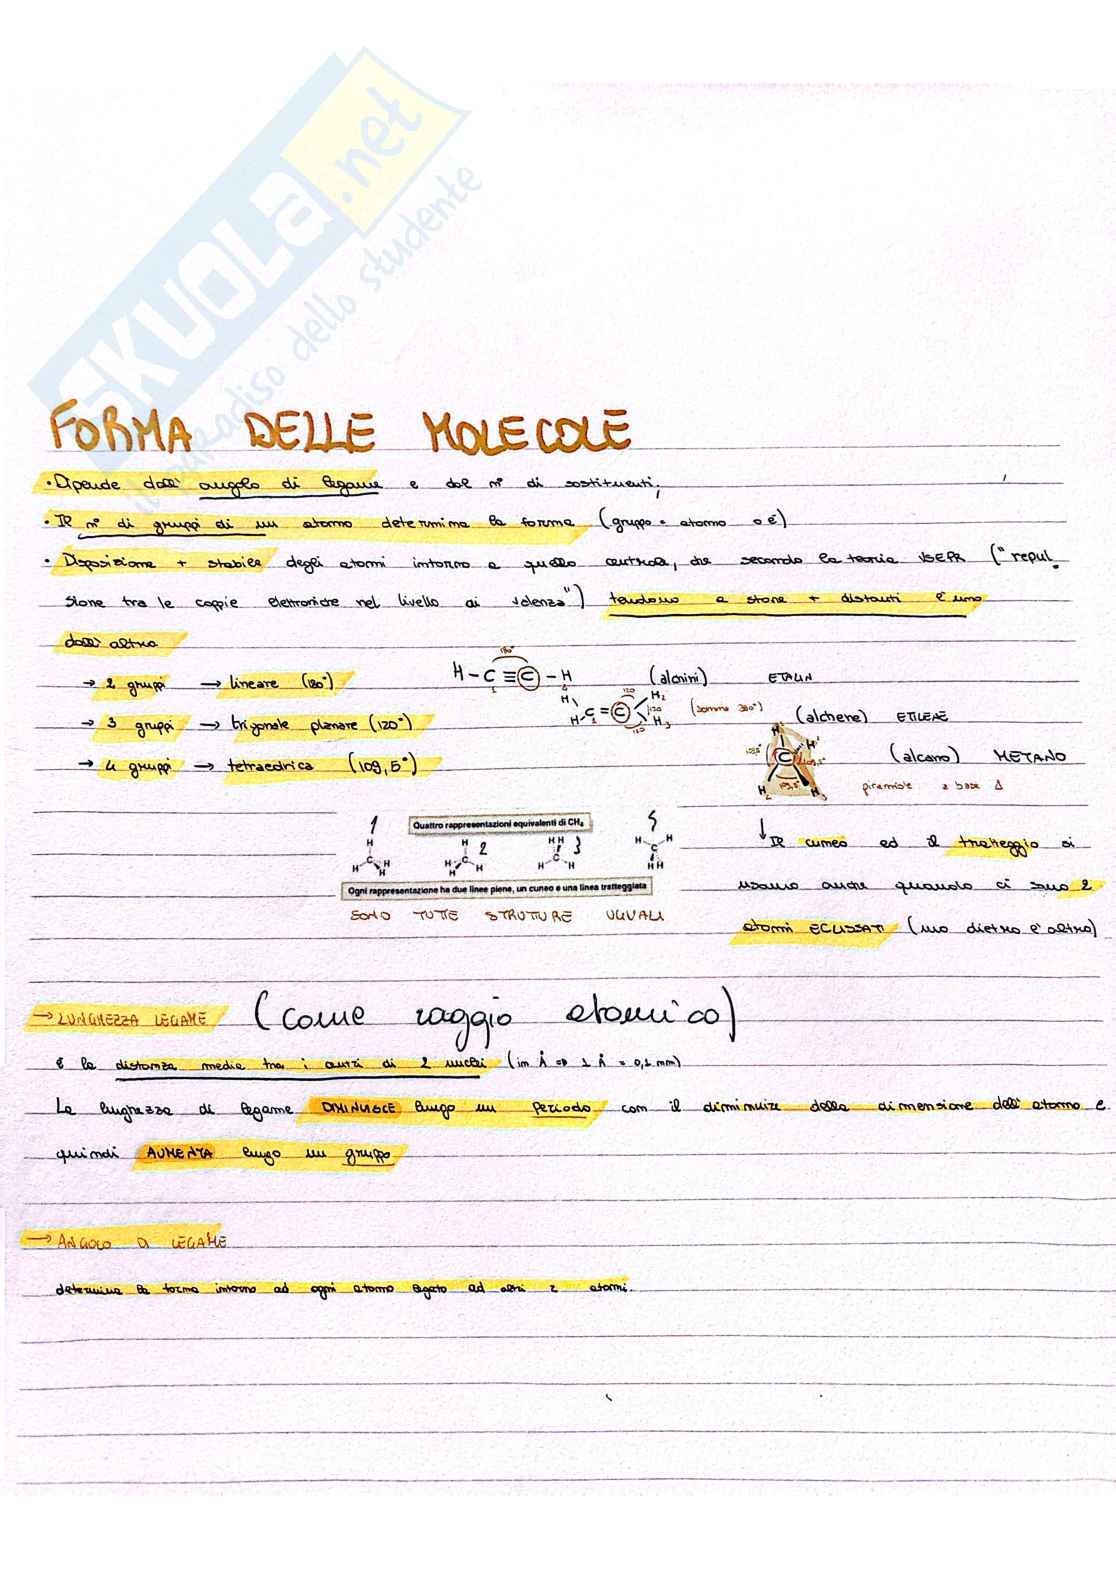 SKUOLA.net
il paradiso dello studente
FORMA DELLE MOLECOLE
• Dipende dall' angolo di legame e dal n° di sostituenti;
• Il n° di gruppi di un atomo determina la forma (gruppo = atomo o é)
• Disposizione + stabile degli atomi intorno a quello centrale, che secondo la teoria VSEPR ("repul_
sione tra le coppie elettroniche nel livello di valenza") tendono a stare + distanti l'uno
dall' altro
→ 2 gruppi → lineare (180°) H-C≡C-H (alchini) ETALIN
180°
→ 3 gruppi → trigonale planare (120°) C=C (somma 360°) (alchene) ETILENE
→ 4 gruppi → tetraedrica (109,5°) (alcano) METANO
piramide a base Δ
Quattro rappresentazioni equivalenti di CH₄
Ogni rappresentazione ha due linee piene, un cuneo e una linea tratteggiata
SONO TUTTE STRUTTURE UGUALI
↓ Il cuneo ed il tratteggio si
usano anche quando ci sono 2
atomi ECLISSATI (uno dietro l'altro)
→ LUNGHEZZA LEGAME (come raggio atomico)
è la distanza media tra i centri di 2 nuclei (in Å => 1 Å = 0,1 nm)
La lunghezza di legame DIMINUISCE lungo un periodo con il diminuire della dimensione dell' atomo e
quindi AUMENTA lungo un gruppo
→ ANGOLO DI LEGAME
determina la forma intorno ad ogni atomo legato ad altri 2 atomi.